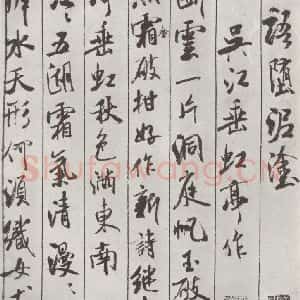 語墮泥塗
吳江垂虹亭作
斷雲一片洞庭帆玉破
魚霜破柑好作新詩繼
垂虹秋色滿東南
〻五湖霜氣清漫〻
水天形何須織女支
Shufawang.cn